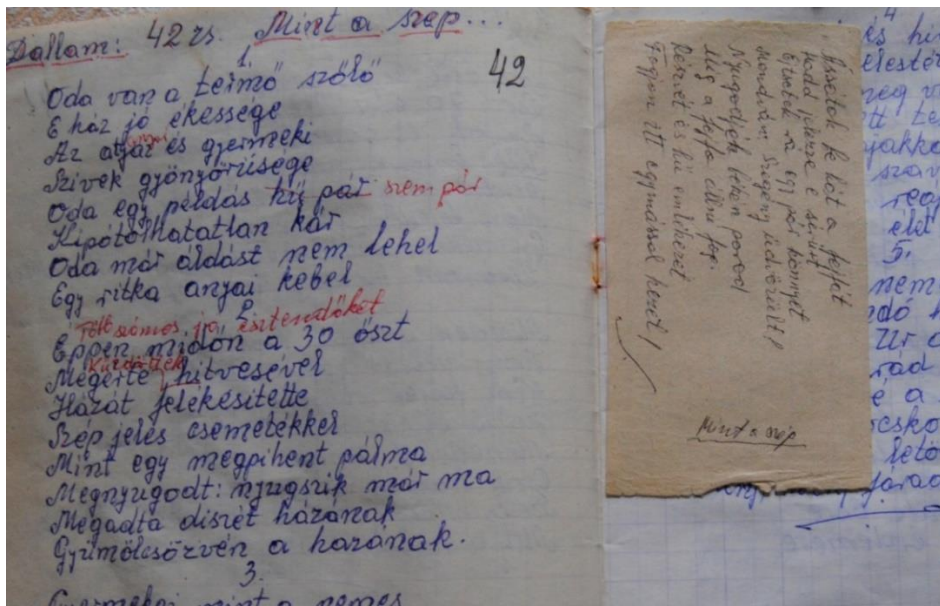 Dallam: 42 zs. Mint a szép...
1.
42
Oda van a termő szőlő
E ház jó ékessége
anyai
Az atyai és gyermeki
Szívek gyönyörűsége
Oda egy példás hű pár szem pár
Kipótólhatatlan kár
Oda már áldást nem lehel
Egy ritka anyai kebel
2.
számos jó esztendőket
Éppen midőn a 30 őszt
Küzdöttek
Megérte hitvesével
Házát jelékesítette
Szép jeles csemetékkel
Mint egy megpihent pálma
Megnyugodt: nyugszik már ma
Megadta díszét házának
Gyümölcsözvén a hazának.
3.
Gyermekei mint a nemes
Ássátok be hát a fejfát
Hadd jelezze e sírt
Ejtsetek rá egy pár könnyet
Mondván: szegény üdvözült!
Nyugodjék béken porod
Míg a fejfa állni fog.
Részvét és hű emlékezet
Fogjon itt egymással kezet!
Mint a szép
4
és hi
szav
élet
5.
nem
Úr
é a